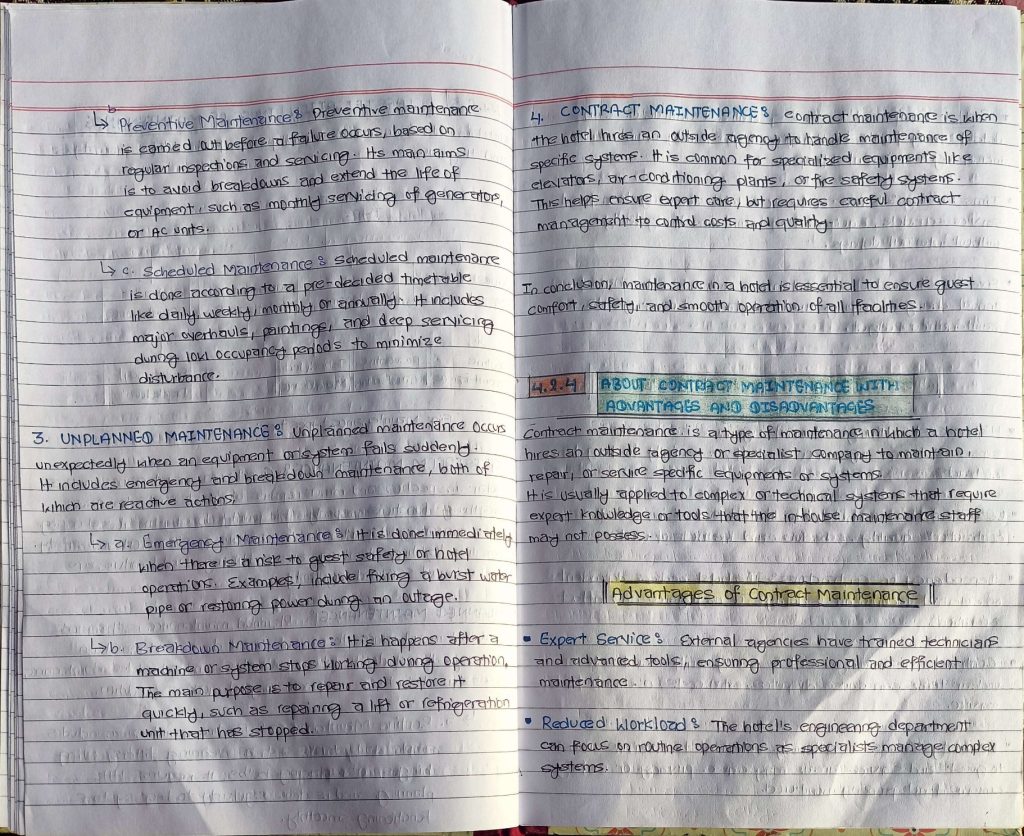 b
↳ Preventive Maintenance : Preventive maintenance
is carried out before a failure occurs, based on
regular inspections and servicing. Its main aims
is to avoid breakdowns and extend the life of
equipment, such as monthly servicing of generators,
or AC units.
↳ c. Scheduled Maintenance : Scheduled maintenance
is done according to a pre-decided timetable
like daily, weekly, monthly or annually. It includes
major overhauls, paintings, and deep servicing
during low occupancy periods to minimize
disturbance.
3. UNPLANNED MAINTENANCE : Unplanned maintenance occurs
unexpectedly when an equipment or system fails suddenly.
It includes emergency and breakdown maintenance, both of
which are reactive actions.
↳ a. Emergency Maintenance : It is done immediately
when there is a risk to guest safety or hotel
operations. Examples include fixing a burst water
pipe or restoring power during an outage.
↳ b. Breakdown Maintenance : This happens after a
machine or system stops working during operation.
The main purpose is to repair and restore it
quickly, such as repairing a lift or refrigeration
unit that has stopped.
4. CONTRACT MAINTENANCE : Contract maintenance is when
the hotel hires an outside agency to handle maintenance of
specific systems. It is common for specialized equipments like
elevators, air-conditioning plants, or fire safety systems.
This helps ensure expert care, but requires careful contract
management to control costs and quality.
In conclusion, maintenance in a hotel is essential to ensure guest
comfort, safety, and smooth operation of all facilities.
4.2.4 ABOUT CONTRACT MAINTENANCE WITH
ADVANTAGES AND DISADVANTAGES
Contract maintenance is a type of maintenance in which a hotel
hires an outside agency or specialist company to maintain,
repair, or service specific equipments or systems.
It is usually applied to complex or technical systems that require
expert knowledge or tools that the in-house maintenance staff
may not possess.
Advantages of Contract Maintenance
• Expert Service : External agencies have trained technicians
and advanced tools, ensuring professional and efficient
maintenance.
• Reduced Workload : The hotel's engineering department
can focus on routine operations as specialists manage complex
systems.